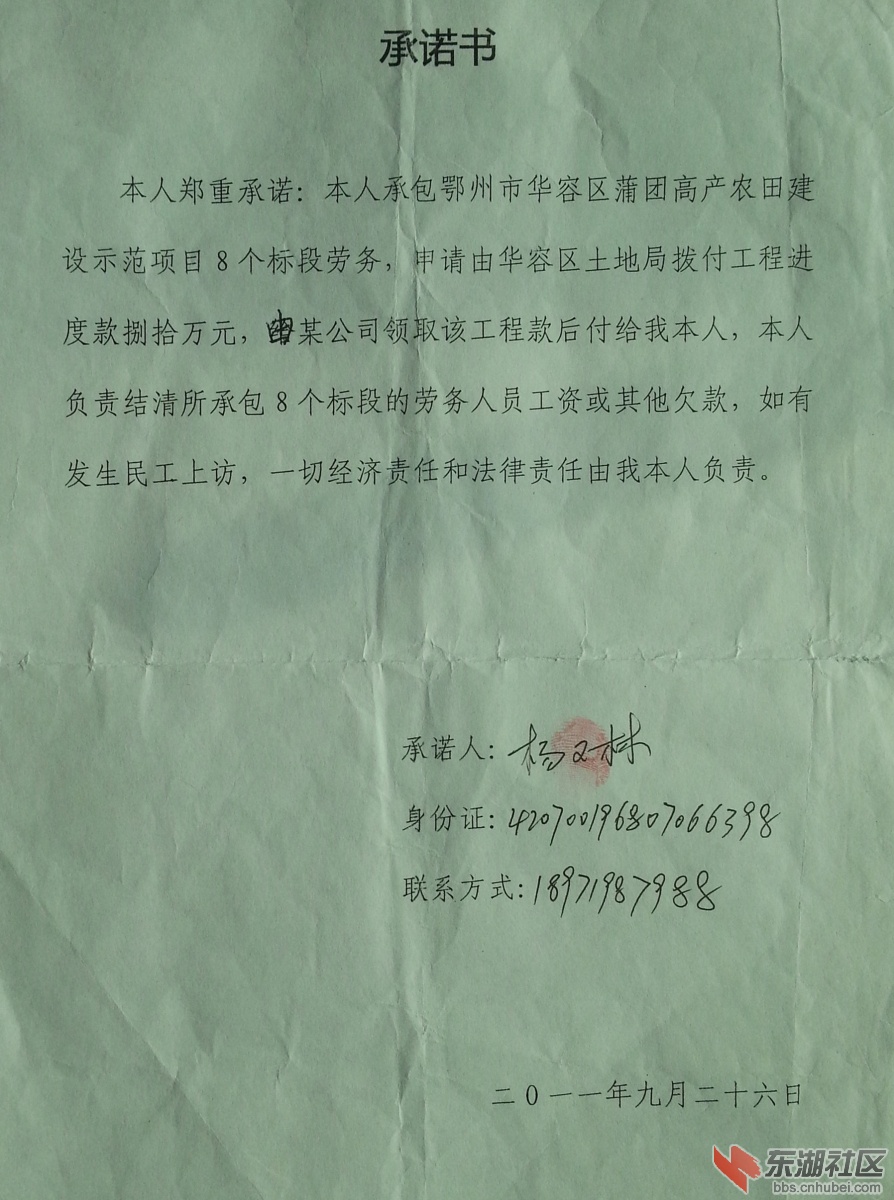 承诺书
本人郑重承诺：本人承包鄂州市华容区蒲团高产农田建
设示范项目8个标段劳务，申请由华容区土地局拨付工程进
度款捌拾万元，由某公司领取该工程款后付给我本人，本人
负责结清所承包8个标段的劳务人员工资或其他欠款，如有
发生民工上访，一切经济责任和法律责任由我本人负责。
承诺人：杨又林
身份证：420700196807066398
联系方式：18971987988
二0一一年九月二十六日
东湖社区
bbs.cnhubei.com